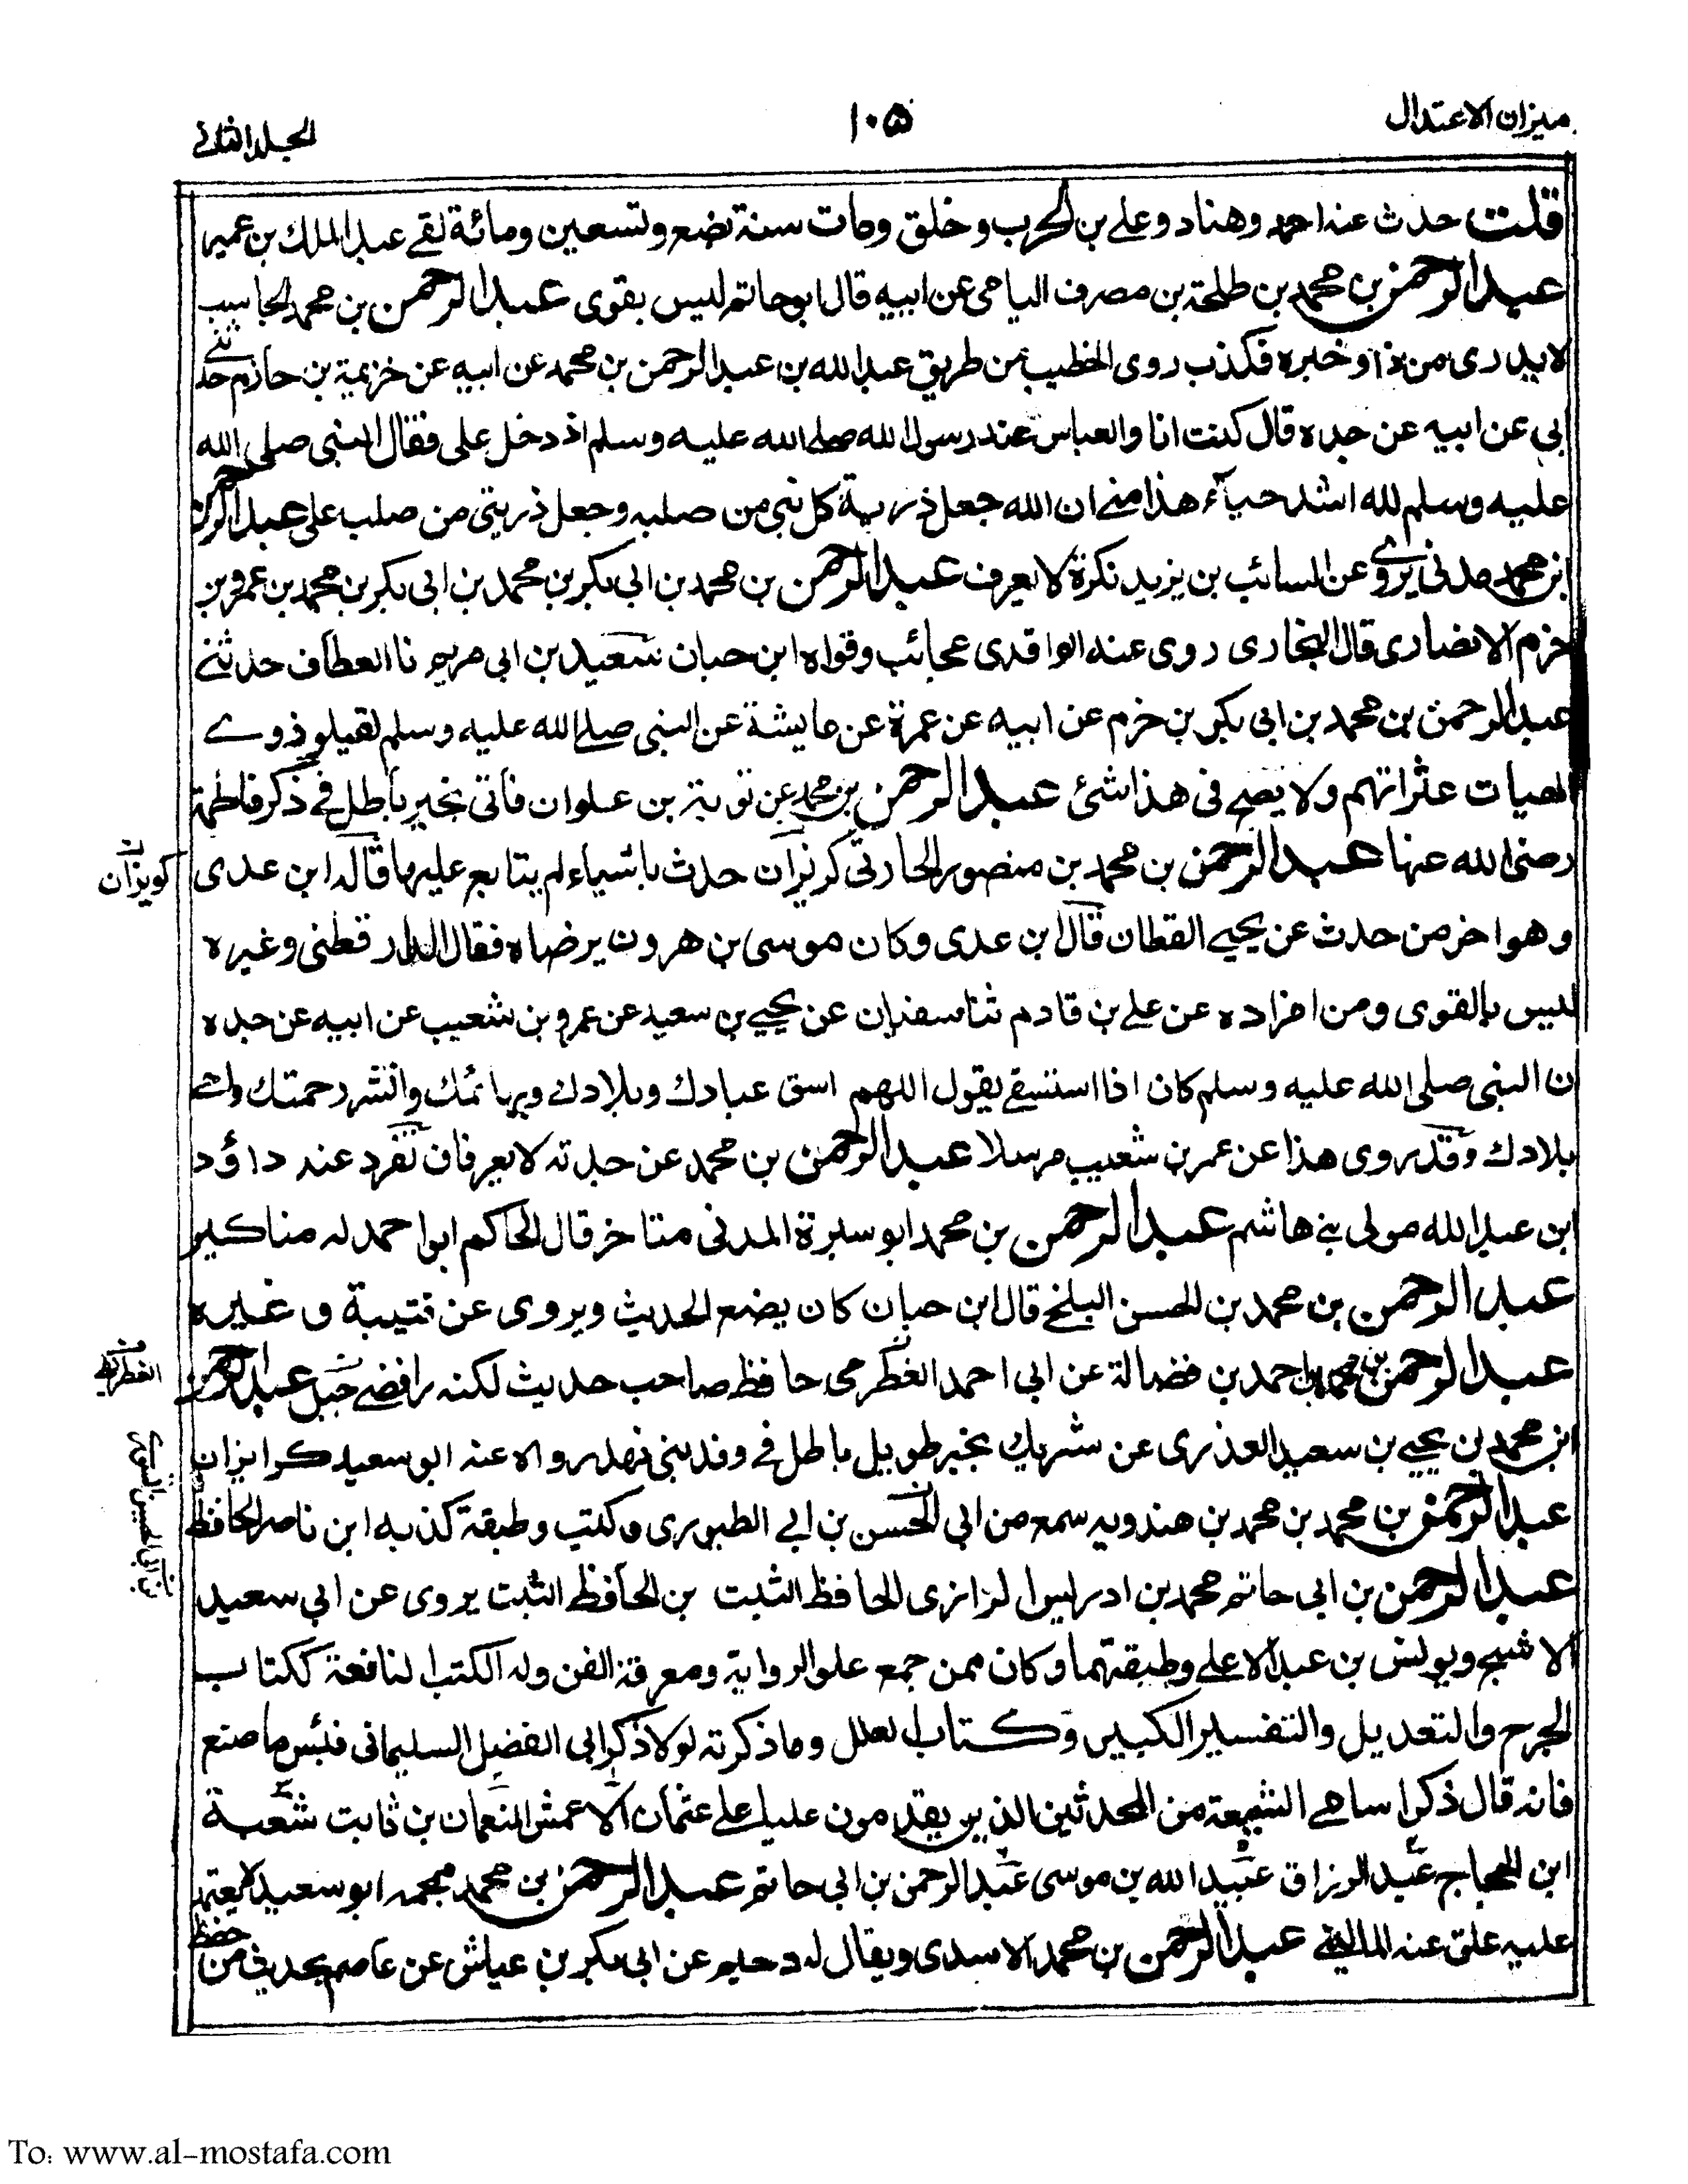 ميزان الاعتدال
١٠٥
المجلد الثانى
قلت حدث عنه احمد وهناد وعلى بن الحرب وخلق ومات سنة بضع وتسعين ومائة لقى عبد الملك بن عمير
عبد الرحمن بن محمد بن طلحة بن مصرف اليامى عن ابيه قال ابو حاتم ليس بقوى عبد الرحمن بن محمد الحاسب
لا يدرى من ذا وخبره فكذب روى الخطيب من طريق عبد الله بن عبد الرحمن بن محمد عن ابيه عن خزيمة بن حازم حدثنى
ابى عن ابيه عن جده قال كنت انا والعباس عند رسول الله صلى الله عليه وسلم اذ دخل على فقال النبى صلى الله
عليه وسلم لله اشد حباً هذا منى ان الله جعل ذرية كل نبى من صلبه وجعل ذريتى من صلب على عبد الرحمن
ابن محمد مدنى يروى عن السائب بن يزيد نكرة لا يعرف عبد الرحمن بن محمد بن ابى بكر بن محمد بن ابى بكر بن محمد بن عمرو بن
حزم الانصارى قال البخارى روى عنه الواقدى عجائب وقواه ابن حبان سعيد بن ابى مريم نا العطاف حدثنى
عبد الرحمن بن محمد بن ابى بكر بن حزم عن ابيه عن عمرة عن عايشة عن النبى صلى الله عليه وسلم اقيلوا ذوى
الهيات عثراتهم ولا يصح فى هذا شئ عبد الرحمن بن محمد عن توبة بن علوان فاتى بخبر باطل فى ذكر فاطمة
رضى الله عنها عبد الرحمن بن محمد بن منصور الحارثى كربزان حدث باشياء لم يتابع عليها قاله ابن عدى
وهو اخر من حدث عن يحيى القطان قال ابن عدى وكان موسى بن هرون يرضاه فقال الدارقطنى وغيره
ليس بالقوى ومن افراده عن على بن قادم ثنا سفيان عن يحيى بن سعيد عن عمرو بن شعيب عن ابيه عن جده
ن النبى صلى الله عليه وسلم كان اذا استسقى يقول اللهم اسق عبادك وبلادك وبهائمك وانشر رحمتك واحى
بلادك وقد روى هذا عن عمر بن شعيب مرسلا عبد الرحمن بن محمد عن جدته لا يعرفان تفرد عنه داؤد
ابن عبد الله مولى بنى هاشم عبد الرحمن بن محمد ابو سبرة المدنى متاخر قال الحاكم ابو احمد له مناكير
عبد الرحمن بن محمد بن الحسن البلخى قال ابن حبان كان يضع الحديث ويروى عن قتيبة وغيره
عبد الرحمن بن محمد بن احمد بن فضالة عن ابى احمد الغطرمى حافظ صاحب حديث لكنه رافضى جبل عبد الرحمن
ابن محمد بن يحيى بن سعيد العذرى عن شريك بخبر طويل باطل فى وفد بنى نهد رواه عنه ابو سعيد كرابزان
عبد الرحمن بن محمد بن محمد بن هندويه سمع من ابى الحسن بن ابى الطيورى وكتب وطبقة كذبه ابن ناصر الحافظ
عبد الرحمن بن ابى حاتم محمد بن ادريس الرازى الحافظ الثبت بن الحافظ الثبت يروى عن ابى سعيد
الاشج ويونس بن عبد الاعلى وطبقتهما وكان ممن جمع علو الرواية ومعرفة الفن وله الكتب النافعة ككتاب
الجرح والتعديل والتفسير الكبير وكتاب العلل وما ذكرته لولا ذكر ابى الفضل السليمانى فبئس ما صنع
فانه قال ذكر اسامى الشيعة من المحدثين الذين يقدمون عليا على عثمان الاعمش النعمان بن ثابت شعبة
ابن الحجاج عبد الرزاق عبيد الله بن موسى عبد الرحمن بن ابى حاتم عبد الرحمن بن محمد ابو سعيد لا يعتمد
عليه علق عنه المالينى عبد الرحمن بن محمد الاسدى ويقال له دحيم عن ابى بكر بن عياش عن عاصم بحديث من حفظ
To: www.al-mostafa.com